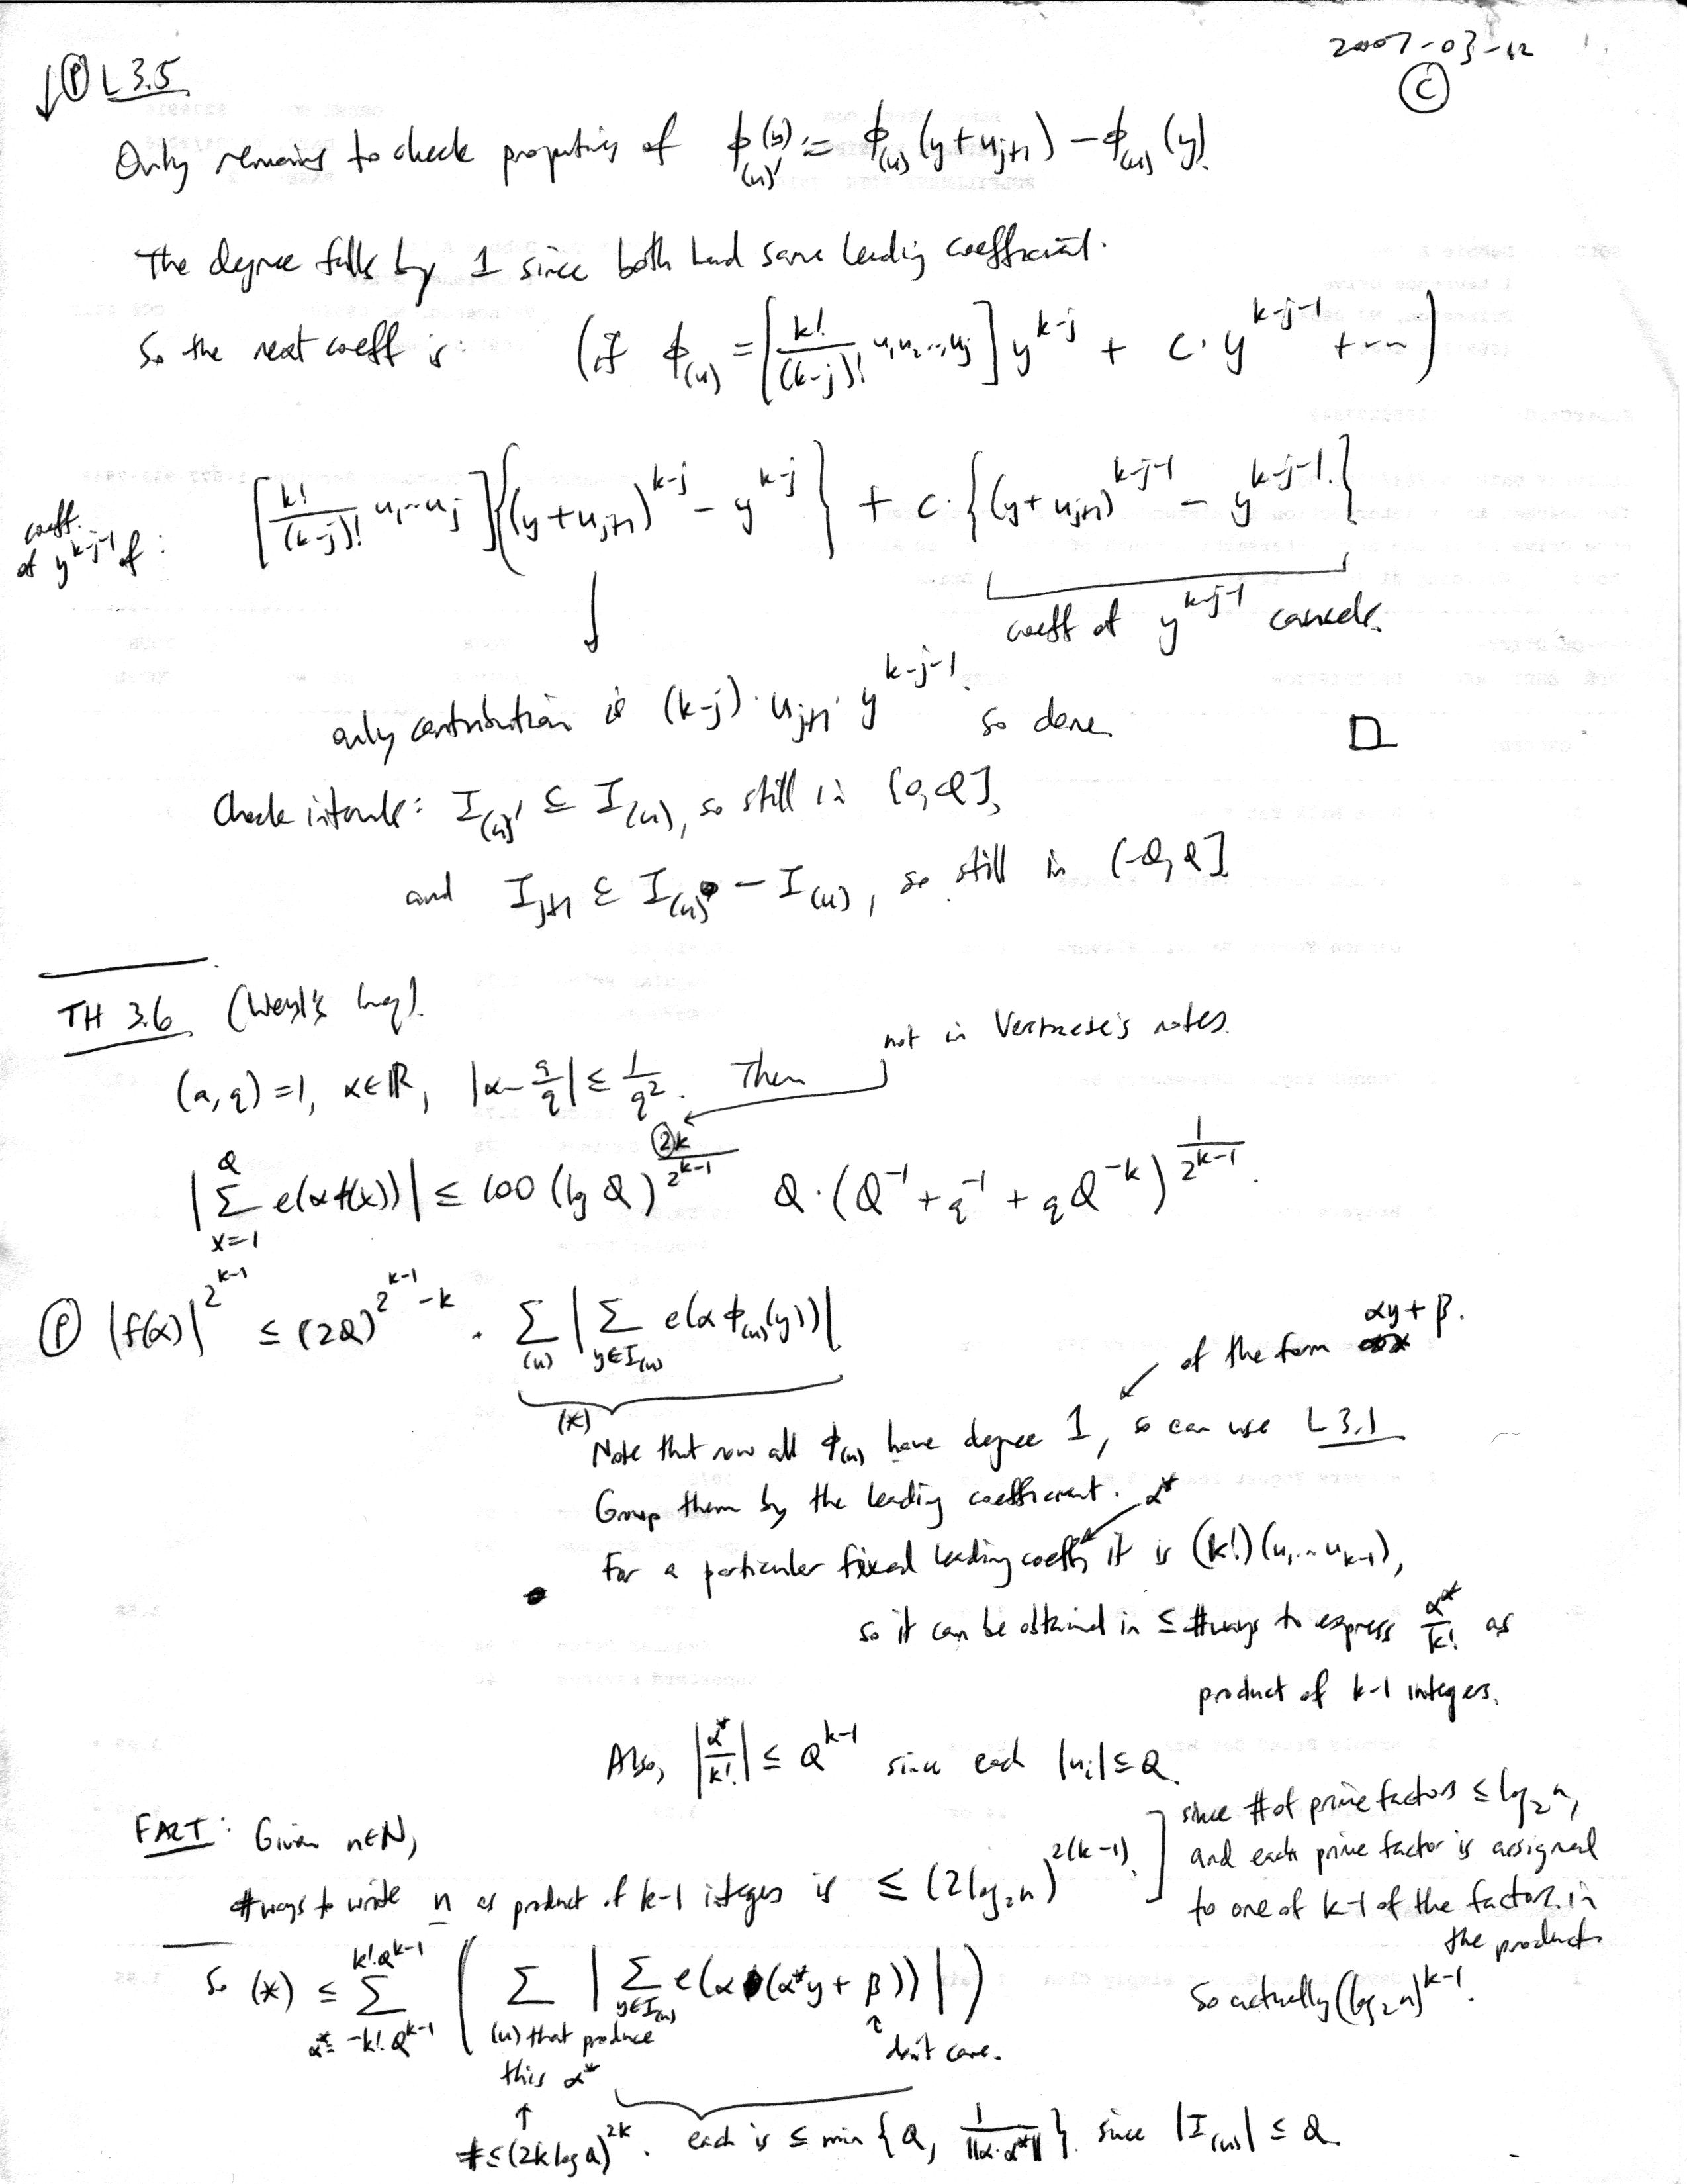 2007-03-12
Ⓒ
↓Ⓟ L 3.5
Only remains to check properties of ϕ_{(u)'}(y) := ϕ_{(u)}(y+u_{j+1}) − ϕ_{(u)}(y).
The degree falls by 1 since both had same leading coefficient.
So the next coeff is (if ϕ_{(u)} = [k!/(k-j)! u_1u_2...u_j] y^{k-j} + c·y^{k-j-1} + ...)
coeff. of y^{k-j-1} of: [k!/(k-j)! u_1...u_j]{(y+u_{j+1})^{k-j} − y^{k-j}} + c·{(y+u_{j+1})^{k-j-1} − y^{k-j-1}}
↓ coeff of y^{k-j-1} cancels.
only contribution is (k-j)·u_{j+1}·y^{k-j-1}. so done. □
Check intervals: I_{(u)'} ⊆ I_{(u)}, so still in [0,Q],
and I_{j+1} ⊆ I_{(u)} − I_{(u)}, so still in (-Q,Q]
TH 3.6 (Weyl's Ineq).
not in Verstraete's notes.
(a,q)=1, α∈ℝ, |α − a/q| ≤ 1/q². Then
|Σ_{x=1}^{Q} e(αf(x))| ≤ 100 (lg Q)^{②k/2^{k-1}} Q·(Q^{-1} + q^{-1} + qQ^{-k})^{1/2^{k-1}}.
Ⓟ |f(α)|^{2^{k-1}} ≤ (2Q)^{2^{k-1}-k} · Σ_{(u)} |Σ_{y∈I_{(u)}} e(αϕ_{(u)}(y))|
(*)
of the form αy + β.
Note that now all ϕ_{(u)} have degree 1, so can use L 3.1
Group them by the leading coefficient. α*
For a particular fixed leading coeff, it is (k!)(u_1...u_{k-1}),
so it can be obtained in ≤ #ways to express α*/k! as
product of k-1 integers.
Also, |α*/k!| ≤ Q^{k-1} since each |u_i| ≤ Q.
FACT: Given n∈ℕ,
#ways to write n as product of k-1 integers is ≤ (2log_2 n)^{2(k-1)}.
since # of prime factors ≤ log_2 n,
and each prime factor is assigned
to one of k-1 of the factors in
the product.
So actually (log_2 n)^{k-1}.
So (*) ≤ Σ_{α*=-k!Q^{k-1}}^{k!Q^{k-1}} ( Σ_{(u) that produce this α*} |Σ_{y∈I_{(u)}} e(α(α*y + β))| )
↑ don't care.
↑ # ≤ (2k log Q)^{2k}. each is ≤ min {Q, 1/‖α·α*‖}. since |I_{(u)}| ≤ Q.